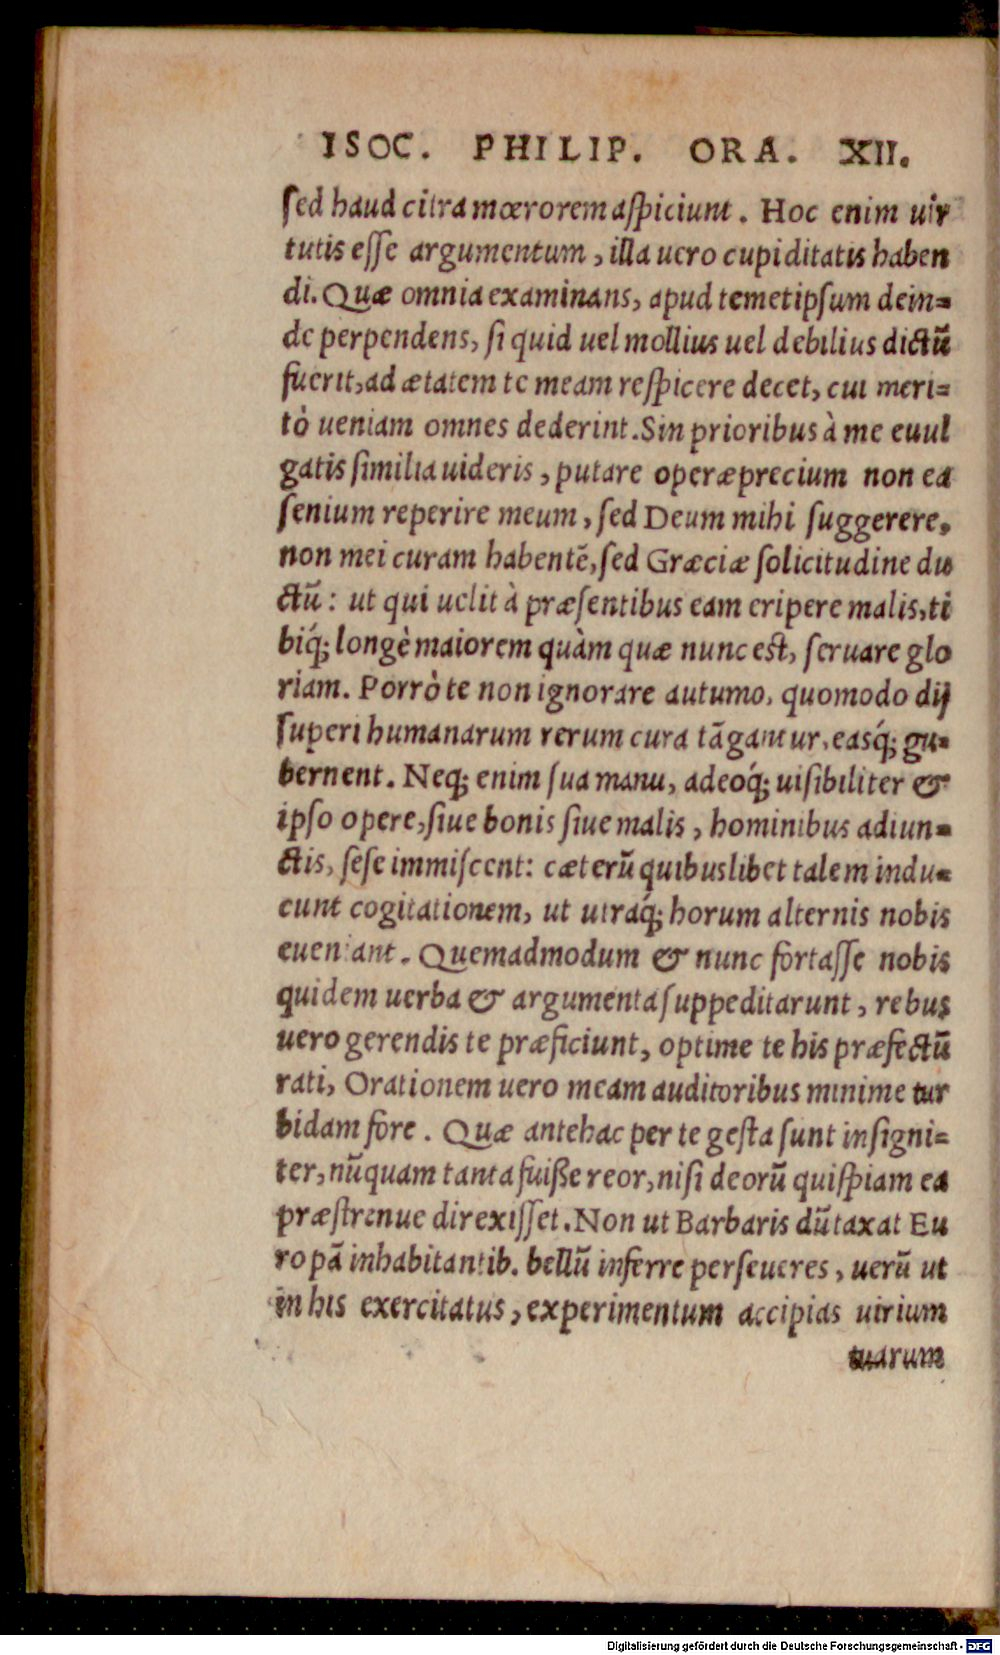 ISOC. PHILIP. ORA. XII.
sed haud citra mœrorem aspiciunt. Hoc enim uir
tutis esse argumentum, illa uero cupiditatis haben
di. Quæ omnia examinans, apud temetipsum dein=
de perpendens, si quid uel mollius uel debilius dictũ
fuerit, ad ætatem te meam respicere decet, cui meri=
tò ueniam omnes dederint. Sin prioribus à me euul
gatis similia uideris, putare operæprecium non ea
senium reperire meum, sed Deum mihi suggerere,
non mei curam habentẽ, sed Græciæ solicitudine du
ctũ: ut qui uelit à præsentibus eam eripere malis, ti
biq́; longè maiorem quàm quæ nunc est, seruare glo
riam. Porrò te non ignorare autumo, quomodo dij
superi humanarum rerum cura tãgantur, easq́; gu=
bernent. Neq; enim sua manu, adeoq́; uisibiliter &
ipso opere, siue bonis siue malis, hominibus adiun=
ctis, sese immiscent: cæterũ quibuslibet talem indu=
cunt cogitationem, ut utraq́; horum alternis nobis
eueniant. Quemadmodum & nunc fortasse nobis
quidem uerba & argumenta suppeditarunt, rebus
uero gerendis te præficiunt, optime te his præfectũ
rati, Orationem uero meam auditoribus minime tur
bidam fore. Quæ antehac per te gesta sunt insigni=
ter, nũquam tanta fuiße reor, nisi deorũ quispiam ea
præstrenue direxisset. Non ut Barbaris dũtaxat Eu
ropã inhabitantib. bellũ inferre perseueres, uerũ ut
in his exercitatus, experimentum accipias uirium
tuarum
Digitalisierung gefördert durch die Deutsche Forschungsgemeinschaft - DFG